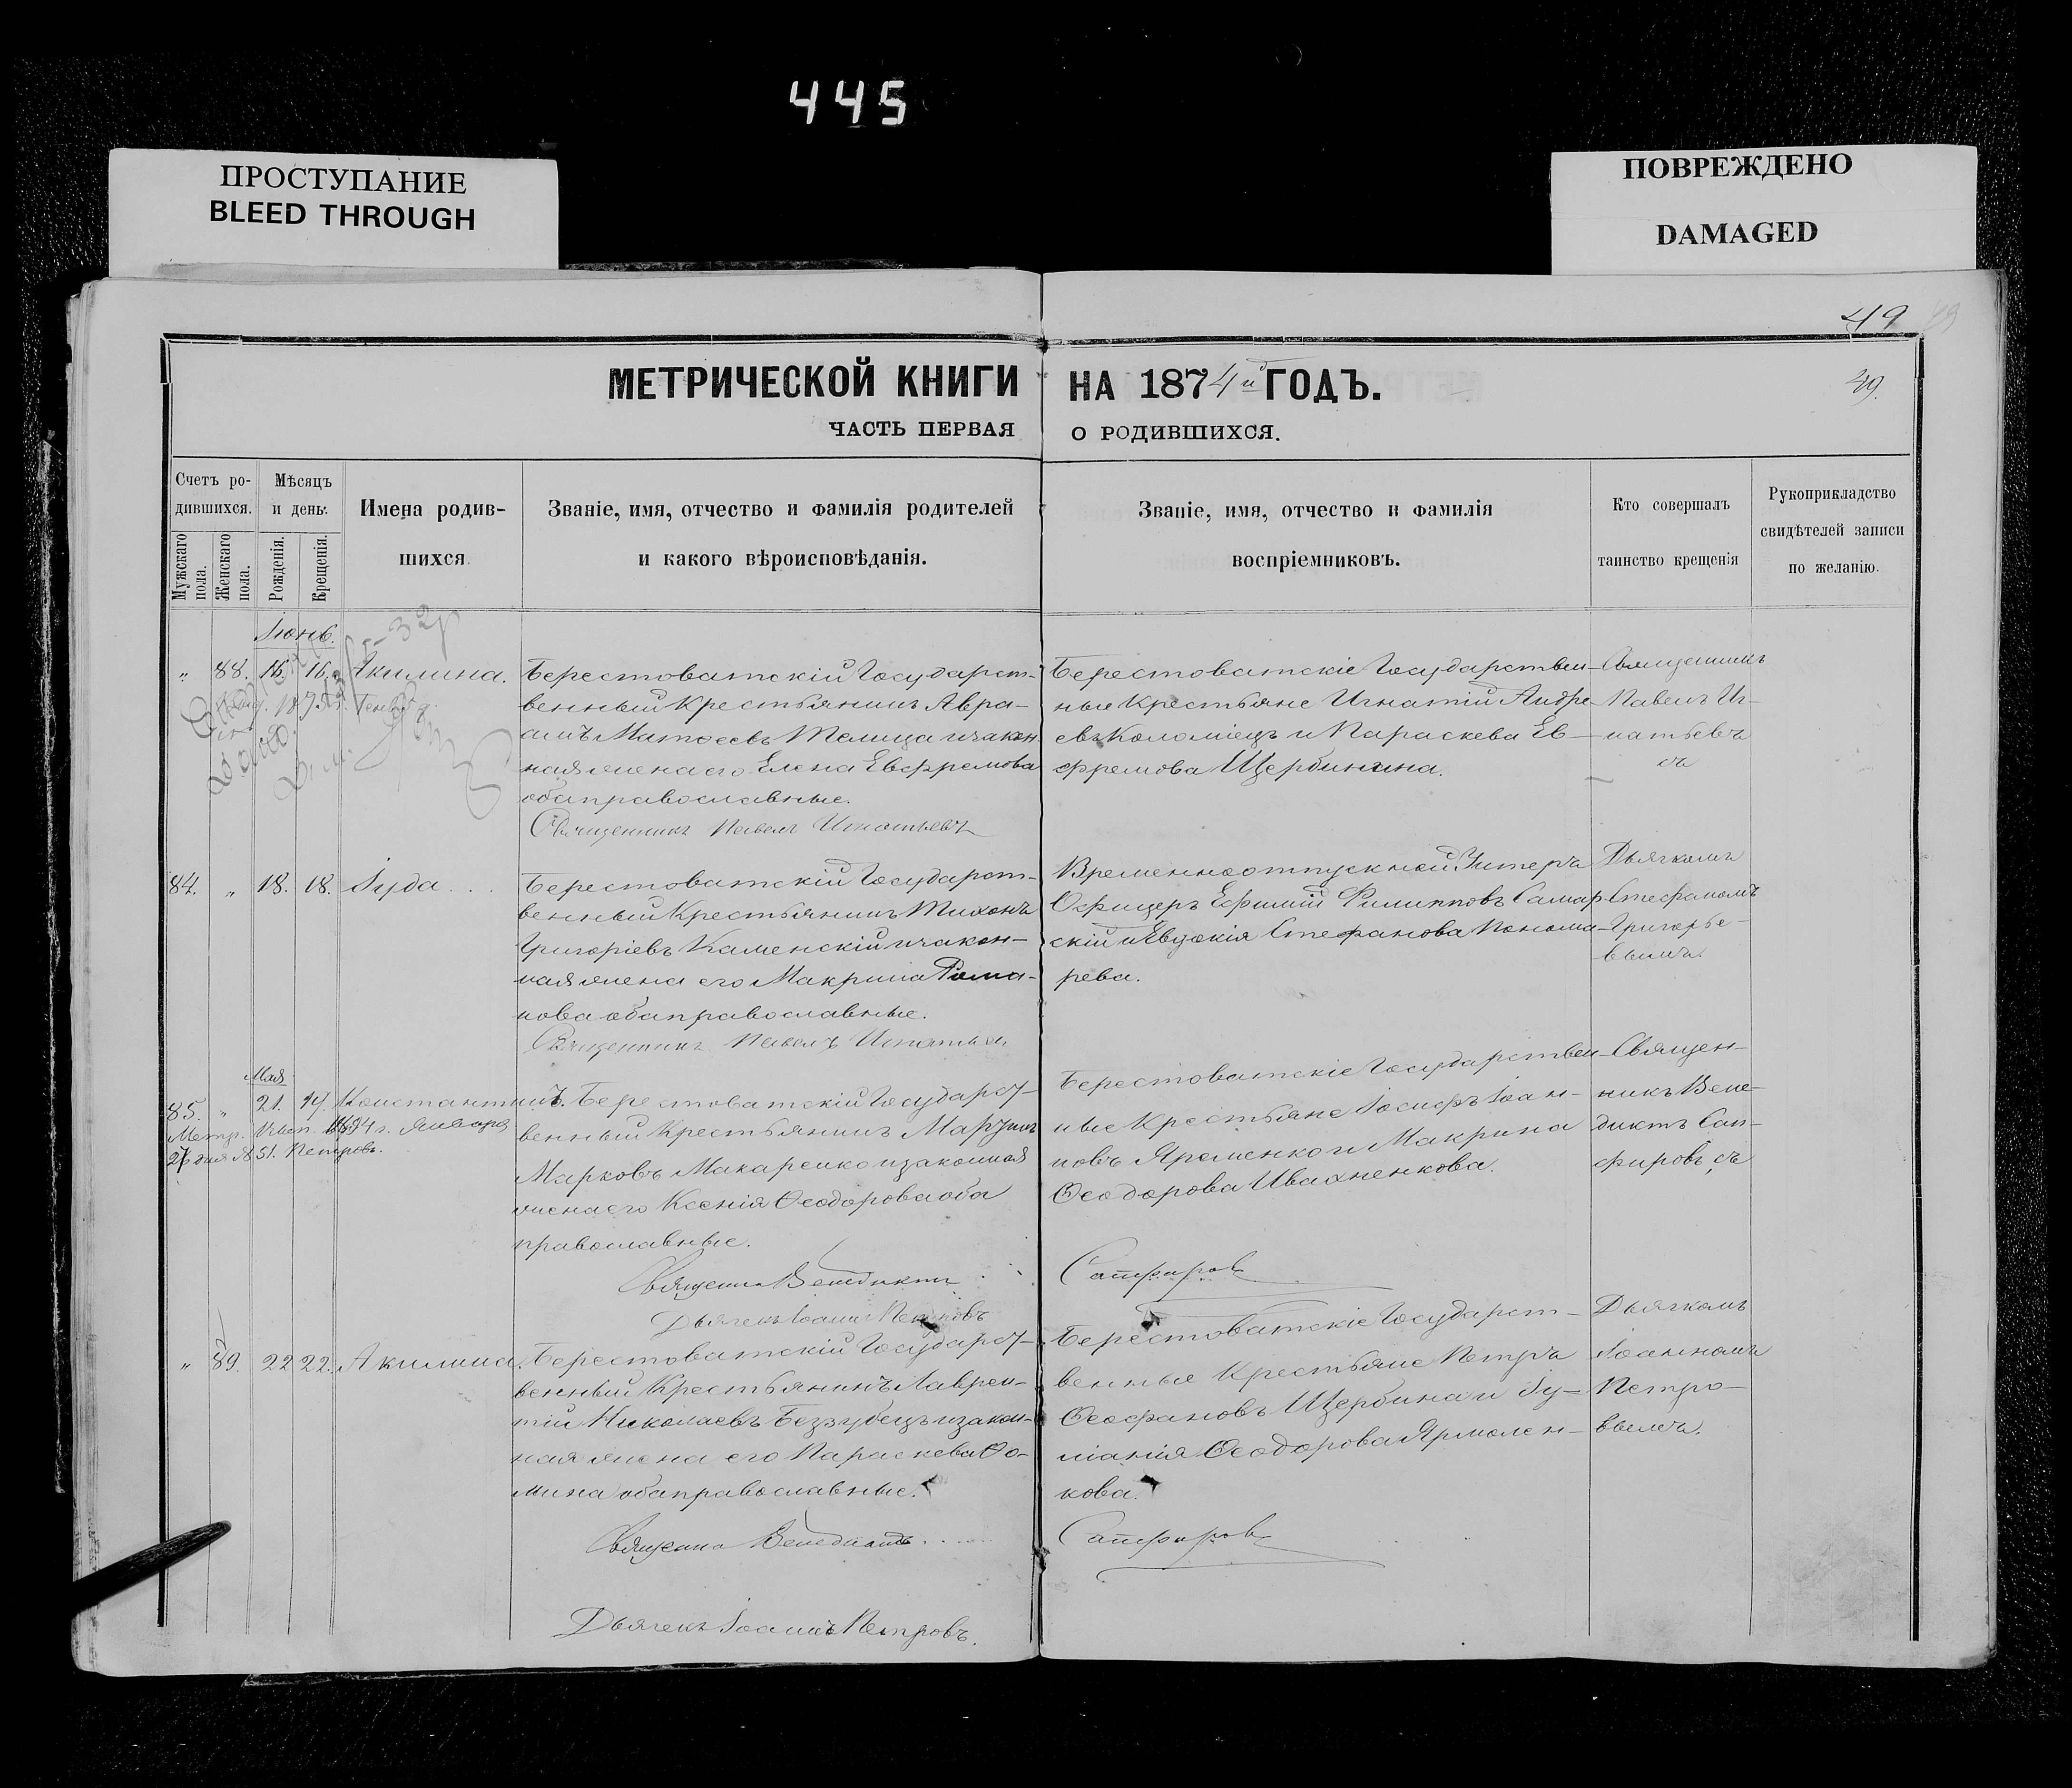 445
ПРОСТУПАНИЕ
BLEED THROUGH
ПОВРЕЖДЕНО
DAMAGED
49
МЕТРИЧЕСКОЙ КНИГИ НА 1874й ГОДЪ.
49.
ЧАСТЬ ПЕРВАЯ О РОДИВШИХСЯ.
Счетъ ро-
дившихся.
Мужскаго пола.
Женскаго пола.
Мѣсяцъ
и день.
Рожденія.
Крещенія.
Имена родив-
шихся
Званіе, имя, отчество и фамилія родителей
и какого вѣроисповѣданія.
Званіе, имя, отчество и фамилія
воспріемниковъ.
Кто совершалъ
таинство крещенія
Рукоприкладство
свидѣтелей записи
по желанію.
Іюнь.
" 88. 16. 16. Акилина.
Берестоватскій Государст-
венный Крестьянинъ Авра-
амъ Матѳеевъ Телица и закон-
ная жена его Елена Евфремова
оба православные.
Священникъ Павелъ Игнатьевъ
Берестоватскіе Государствен-
ные Крестьяне Игнатій Андре-
евъ Коломіецъ и Параскева Ев-
фремова Щербинина.
Священникъ
Павелъ Иг-
натьевъ
съ
84. " 18. 18. Іуда...
Берестоватскій Государст-
венный Крестьянинъ Тихонъ
Григоріевъ Каменскій и закон-
ная жена его Макрина Рома-
нова оба православные.
Священникъ Павелъ Игнатьевъ
Временноотпускной Унтеръ
Офицеръ Ефимій Филипповъ Самар-
скій и Евдокія Стефанова Понома-
рева.
Дьячкомъ
Стефаномъ
Григорье-
вымъ.
Мая
85. " 21. 19. Константинъ.
Метр. 1894 г. Января
27 дня № 51. Петровъ.
Берестоватскій Государст-
венный Крестьянинъ
Марковъ Макаренко и законная
жена его Ксенія Ѳеодорова оба
православные.
Священ. Венедиктъ
Дьячекъ Іоаннъ Петровъ
Берестоватскіе Государствен-
ные Крестьяне Іосифъ Іоан-
новъ Яременко и Макрина
Ѳеодорова Ивахненкова.
Сапфировъ
Священ-
никъ Вене-
диктъ Сап-
фировъ, съ
" 89. 22 22. Акилина.
Берестоватскій Государст-
венный Крестьянинъ Лаврен-
тій Николаевъ Беззубецъ и закон-
ная жена его Параскева Ѳо-
мина оба православные.
Священ. Венедиктъ
Дьячекъ Іоаннъ Петровъ.
Берестоватскіе Государст-
венные Крестьяне Петръ
Ѳеофановъ Щербина и Іу-
ліанія Ѳеодорова Ярмолен-
кова.
Сапфировъ
Дьячкомъ
Іоанномъ
Петро-
вымъ.